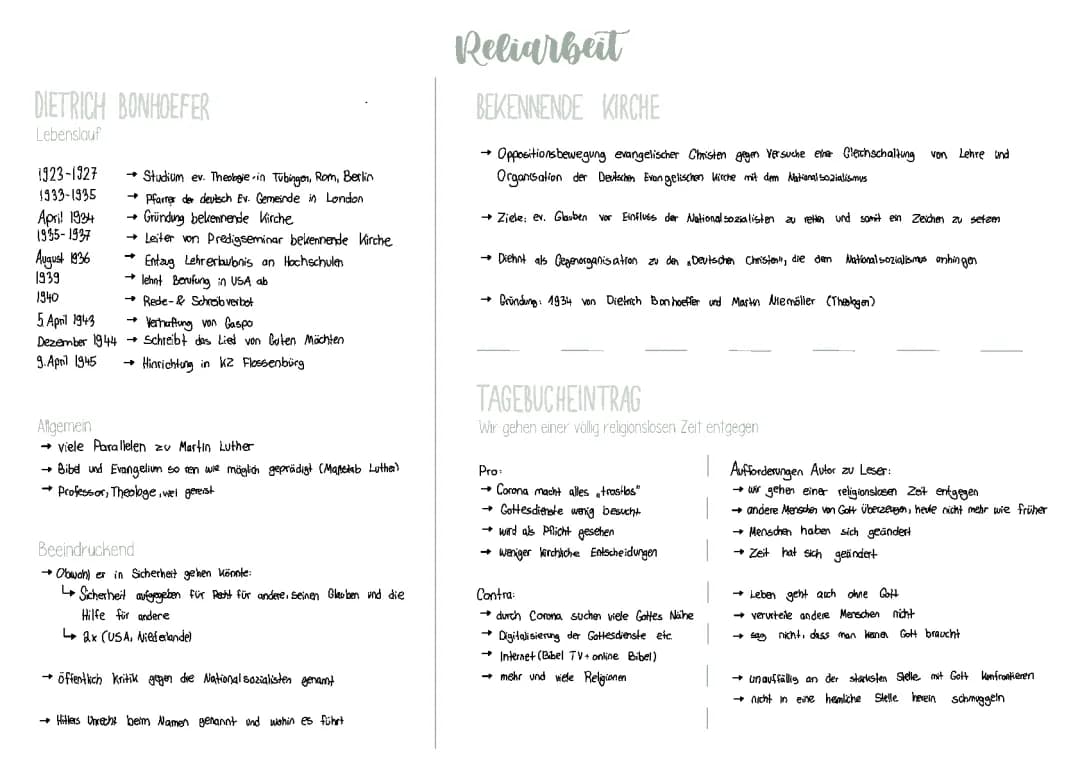 Reliarbeit
DIETRICH BONHOEFER
Lebenslauf
1923-1927 → Studium ev. Theologie in Tübingen, Rom, Berlin
1933-1935 → Pfarrer der deutsch Ev. Gemeinde in London
April 1934 → Gründung bekennende Kirche
1935-1937 → Leiter von Predigseminar bekennende Kirche
August 1936 → Entzug Lehrerlaubnis an Hochschulen
1939 → lehnt Berufung in USA ab
1940 → Rede- & Schreibverbot
5 April 1943 → Verhaftung von Gaspo
Dezember 1944 → Schreibt das Lied von Guten Mächten
9. April 1945 → Hinrichtung in KZ Flossenbürg
Allgemein
→ viele Parallelen zu Martin Luther
→ Bibel und Evangelium so ren wie möglich geprädigt (Maßstab Luther)
→ Professor, Theologe, viel gereist
Beeindruckend
→ Obwohl er in Sicherheit gehen könnte:
↳ Sicherheit aufgegeben für Recht für andere, seinen Glauben und die
Hilfe für andere
↳ 2x (USA, Niederlande)
→ öffentlich Kritik gegen die Nationalsozialisten genannt
→ Hitlers Unrecht beim Namen genannt und wohin es führt
BEKENNENDE KIRCHE
→ Oppositionsbewegung evangelischer Christen gegen Versuche einer Gleichschaltung von Lehre und
Organisation der Deutschen Evangelischen Kirche mit dem Nationalsozialismus
→ Ziele: ev. Glauben vor Einfluss der Nationalsozialisten zu retten und somit ein Zeichen zu setzen
→ Diehnt als Gegenorganisation zu den „Deutschen Christen", die dem Nationalsozialismus anhingen
→ Gründung: 1934 von Dietrich Bonhoeffer und Martin Niemöller (Theologen)
TAGEBUCHEINTRAG
Wir gehen einer völlig religionslosen Zeit entgegen
Pro:
→ Corona macht alles „trostlos"
→ Gottesdienste wenig besucht
→ wird als Pflicht gesehen
→ weniger kirchliche Entscheidungen
Contra:
→ durch Corona suchen viele Gottes Nähe
→ Digitalisierung der Gottesdienste etc.
→ Internet (Bibel TV + online Bibel)
→ mehr und viele Religionen
Aufforderungen Autor zu Leser:
→ wir gehen einer religionslosen Zeit entgegen
→ andere Menschen von Gott überzeugen, heute nicht mehr wie früher
→ Menschen haben sich geändert
→ Zeit hat sich geändert
→ Leben geht auch ohne Gott
→ verurteile andere Menschen nicht
→ sag nicht, dass man keinen Gott braucht
→ unauffällig an der stärksten Stelle mit Gott konfrontieren
→ nicht in eine heimliche Stelle herein schmuggeln